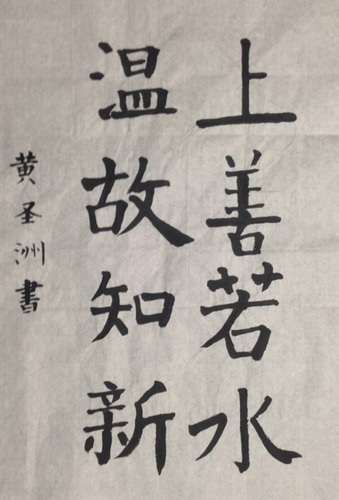 上善若水
温故知新
黄圣洲書